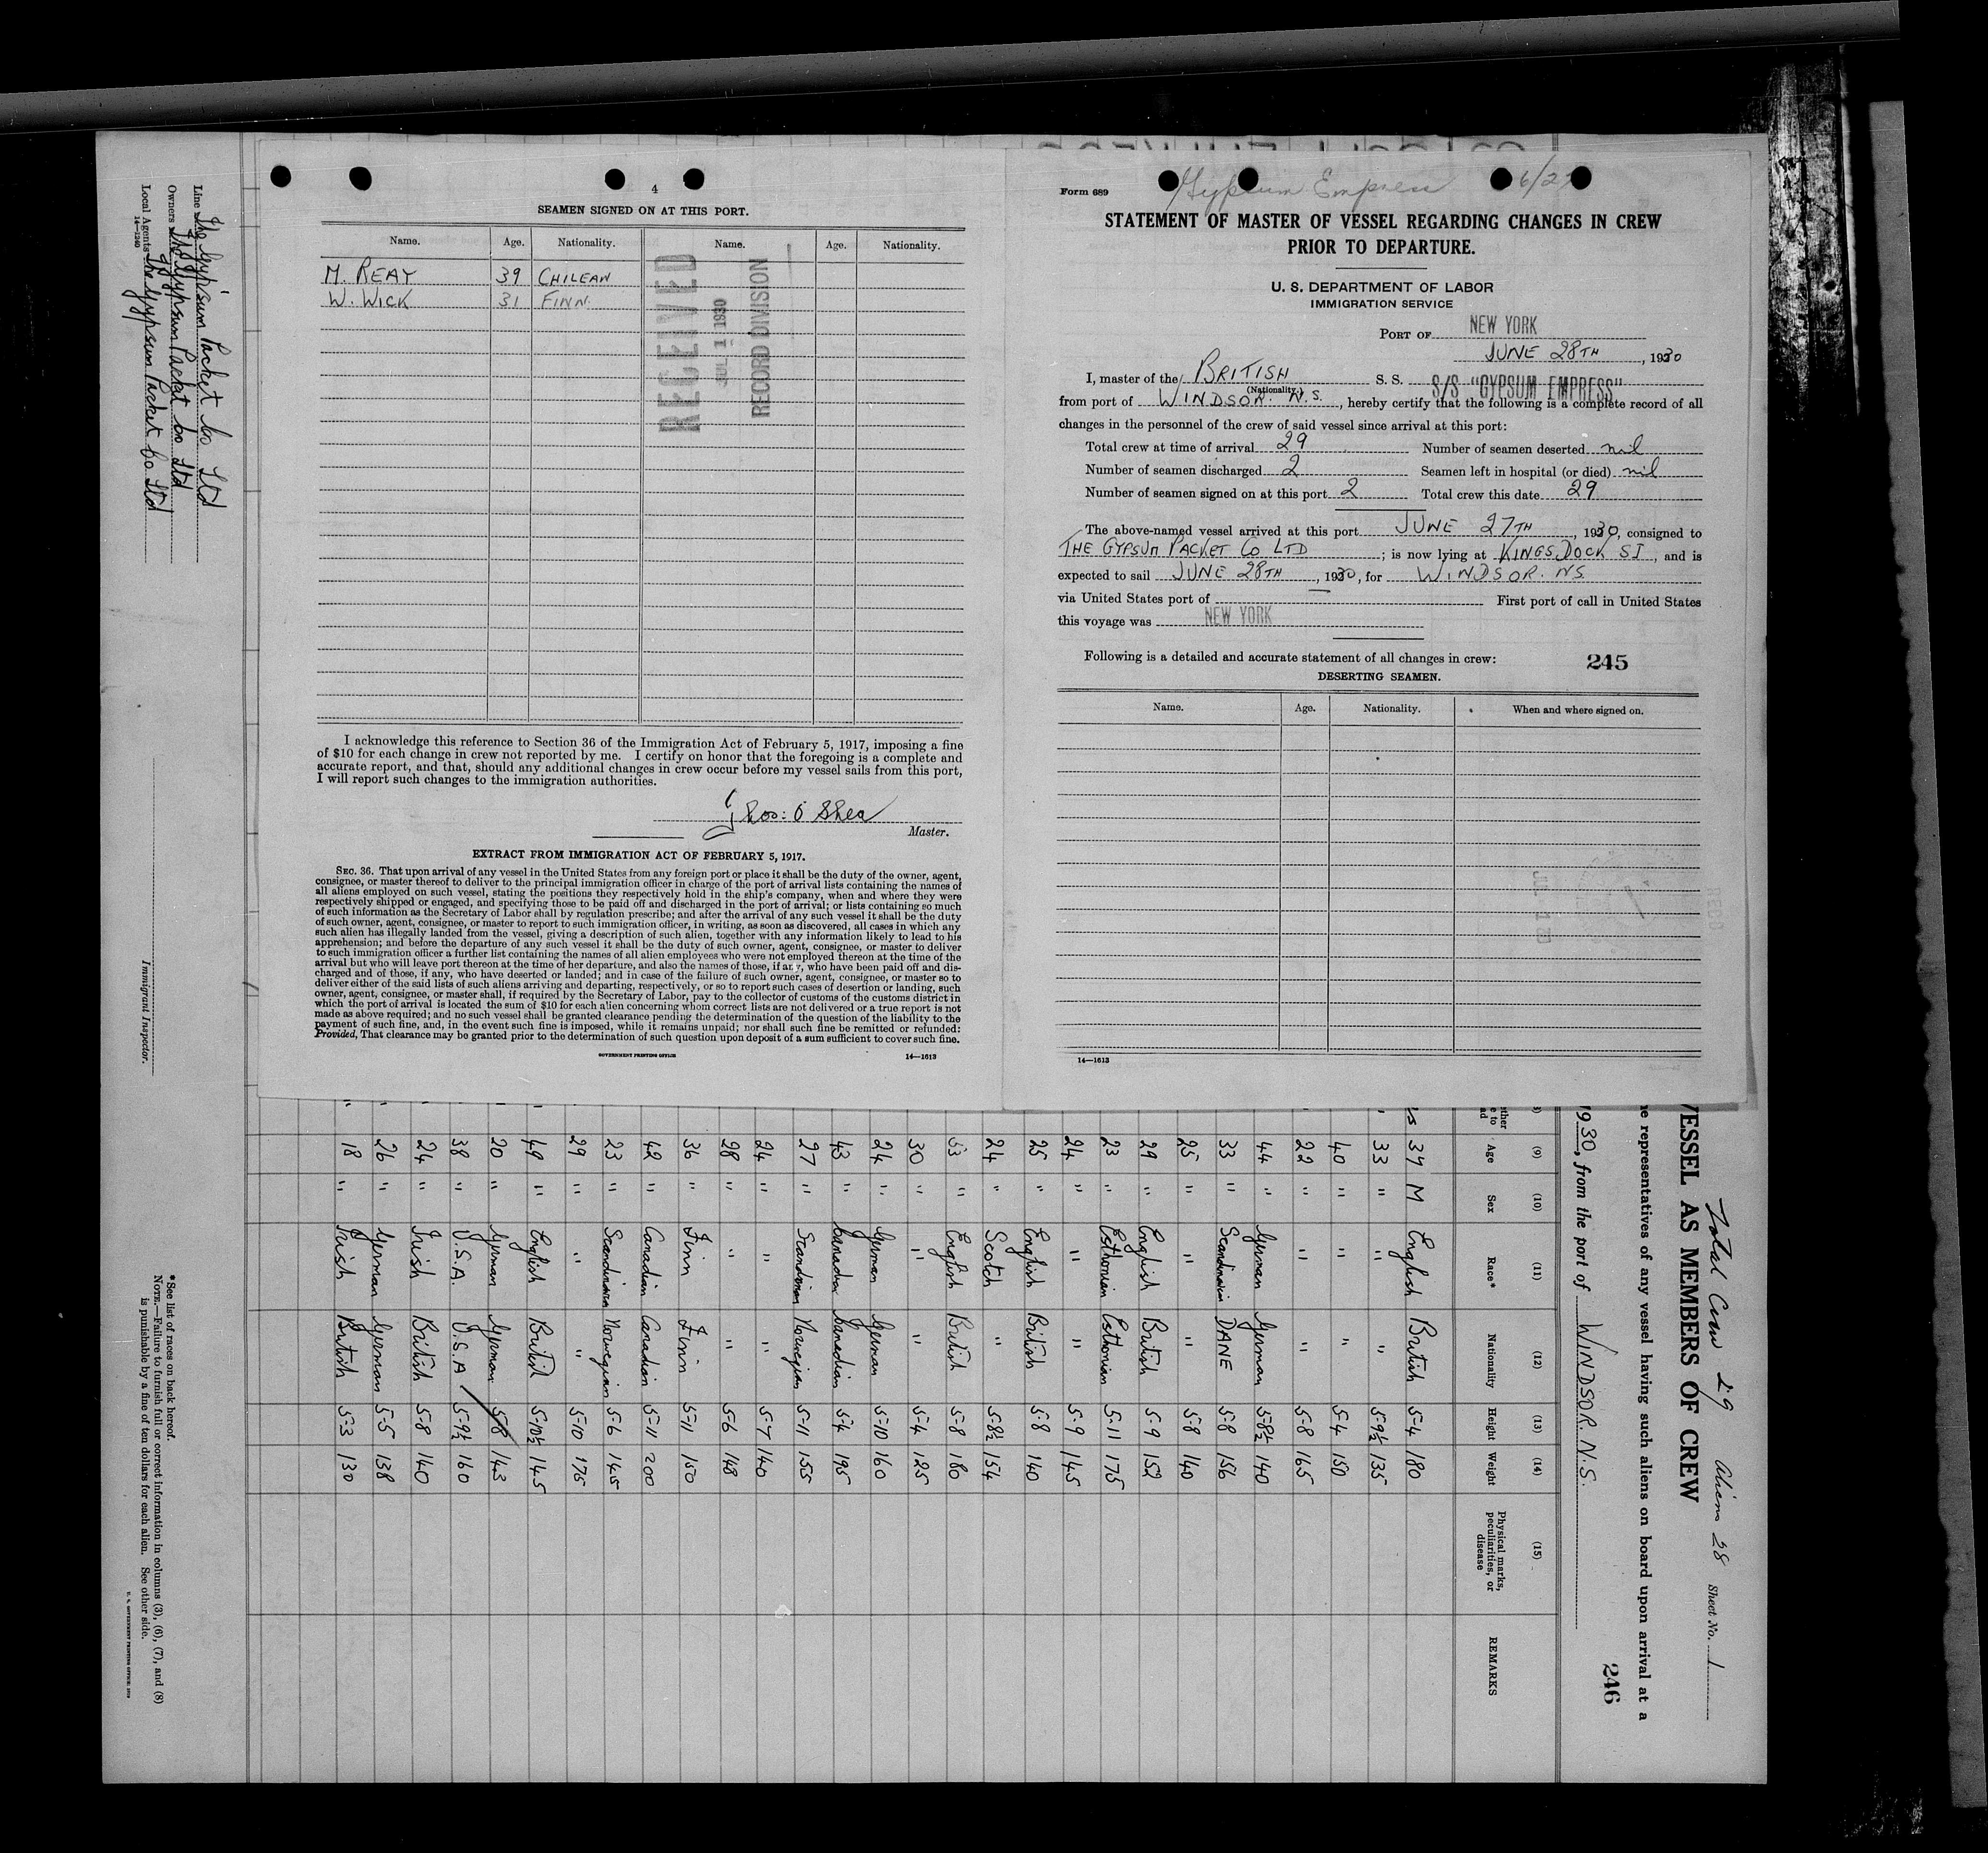 4
SEAMEN SIGNED ON AT THIS PORT.
Name. Age. Nationality. Name. Age. Nationality.
M. REAY 39 CHILEAN
W. WICK 31 FINN.
RECEIVED
JUL 1 1930
RECORD DIVISION
I acknowledge this reference to Section 36 of the Immigration Act of February 5, 1917, imposing a fine
of $10 for each change in crew not reported by me. I certify on honor that the foregoing is a complete and
accurate report, and that, should any additional changes in crew occur before my vessel sails from this port,
I will report such changes to the immigration authorities.
Thos: O'Shea
Master.
EXTRACT FROM IMMIGRATION ACT OF FEBRUARY 5, 1917.
SEC. 36. That upon arrival of any vessel in the United States from any foreign port or place it shall be the duty of the owner, agent,
consignee, or master thereof to deliver to the principal immigration officer in charge of the port of arrival lists containing the names of
all aliens employed on such vessel, stating the positions they respectively hold in the ship's company, when and where they were
respectively shipped or engaged, and specifying those to be paid off and discharged in the port of arrival; or lists containing so much
of such information as the Secretary of Labor shall by regulation prescribe; and after the arrival of any such vessel it shall be the duty
of such owner, agent, consignee, or master to report to such immigration officer, in writing, as soon as discovered, all cases in which any
such alien has illegally landed from the vessel, giving a description of such alien, together with any information likely to lead to his
apprehension; and before the departure of any such vessel it shall be the duty of such owner, agent, consignee, or master to deliver
to such immigration officer a further list containing the names of all alien employees who were not employed thereon at the time of the
arrival but who will leave port thereon at the time of her departure, and also the names of those, if any, who have been paid off and dis-
charged and of those, if any, who have deserted or landed; and in case of the failure of such owner, agent, consignee, or master so to
deliver either of the said lists of such aliens arriving and departing, respectively, or so to report such cases of desertion or landing, such
owner, agent, consignee, or master shall, if required by the Secretary of Labor, pay to the collector of customs of the customs district in
which the port of arrival is located the sum of $10 for each alien concerning whom correct lists are not delivered or a true report is not
made as above required; and no such vessel shall be granted clearance pending the determination of the question of the liability to the
payment of such fine, and, in the event such fine is imposed, while it remains unpaid; nor shall such fine be remitted or refunded:
Provided, That clearance may be granted prior to the determination of such question upon deposit of a sum sufficient to cover such fine.
GOVERNMENT PRINTING OFFICE 14—1613
Form 689 Gypsum Empress 6/27
STATEMENT OF MASTER OF VESSEL REGARDING CHANGES IN CREW
PRIOR TO DEPARTURE.
U. S. DEPARTMENT OF LABOR
IMMIGRATION SERVICE
PORT OF NEW YORK
JUNE 28TH, 1930
I, master of the BRITISH S. S. S/S "GYPSUM EMPRESS"
(Nationality.)
from port of WINDSOR. N.S., hereby certify that the following is a complete record of all
changes in the personnel of the crew of said vessel since arrival at this port:
Total crew at time of arrival 29 Number of seamen deserted nil
Number of seamen discharged 2 Seamen left in hospital (or died) nil
Number of seamen signed on at this port 2 Total crew this date 29
The above-named vessel arrived at this port JUNE 27TH, 1930, consigned to
THE GYPSUM PACKET CO LTD; is now lying at KINGS DOCK S I, and is
expected to sail JUNE 28TH, 1930, for WINDSOR. N.S.
via United States port of First port of call in United States
this voyage was NEW YORK
Following is a detailed and accurate statement of all changes in crew: 245
DESERTING SEAMEN.
Name. Age. Nationality. When and where signed on.
14—1613
Total Crew 29 Aliens 28 Sheet No. 1
VESSEL AS MEMBERS OF CREW
e representatives of any vessel having such aliens on board upon arrival at a
1930, from the port of WINDSOR. N.S.
246
(9) (10) (11) (12) (13) (14) (15)
Age Sex Race* Nationality Height Weight Physical marks, peculiarities, or disease REMARKS
37 M English British 5-4 180
33 " " " 5-9½ 135
40 " " " 5-4 150
22 " " " 5-8 165
44 " German German 5-8½ 140
33 " Scandinavian DANE 5-8 156
25 " " " 5-8 140
29 " English British 5-9 152
23 " Esthonian Esthonian 5-11 175
24 " " " 5-9 145
25 " English British 5-8 140
24 " Scotch " 5-8½ 154
33 " English British 5-8 180
30 " " " 5-4 125
24 " German German 5-10 160
43 " Canadian Canadian 5-4 195
27 " Scandinavian Norwegian 5-11 155
24 " " " 5-7 140
28 " " " 5-6 148
36 " Finn Finn 5-11 150
42 " Canadian Canadian 5-11 200
23 " Scandinavian Norwegian 5-6 145
29 " " " 5-10 175
49 " English British 5-10½ 145
20 " German German 5-8 143
38 " U.S.A. U.S.A 5-9½ 160
24 " Irish British 5-8 140
26 " German German 5-5 138
18 " Irish British 5-3 130
Line The Gypsum Packet Co Ltd
Owners The Gypsum Packet Co Ltd
Local Agents The Gypsum Packet Co Ltd
14—1240
Immigrant Inspector.
*See list of races on back hereof.
NOTE.—Failure to furnish full or correct information in columns (3), (6), (7), and (8)
is punishable by a fine of ten dollars for each alien. See other side.